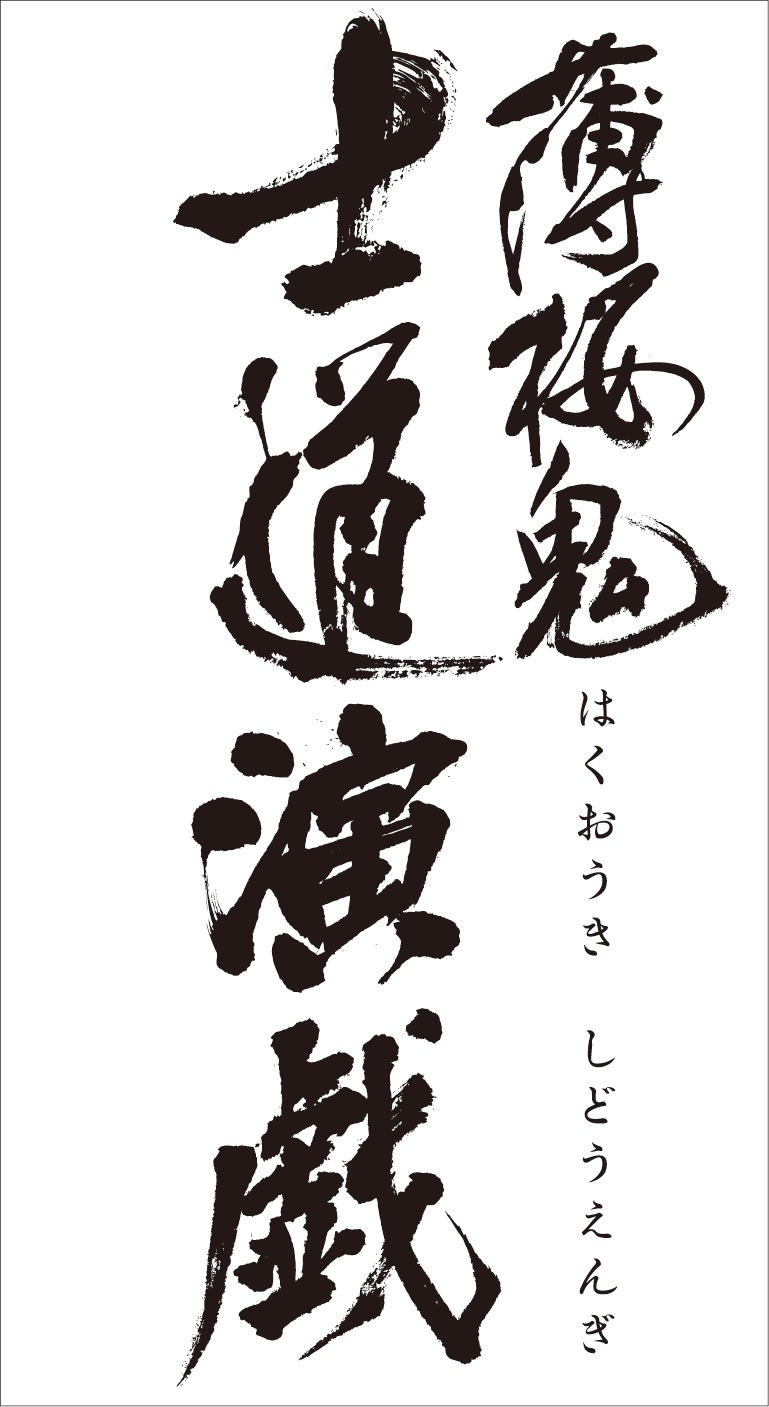 薄桜鬼
はくおうき　しどうえんぎ
士道演戯